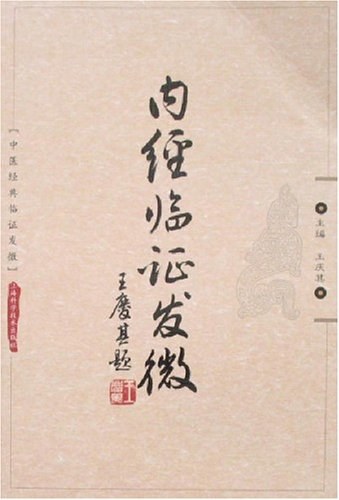 内经临证发微
王庆其题
主编 王庆其
【中医经典临证发微】
上海科学技术出版社